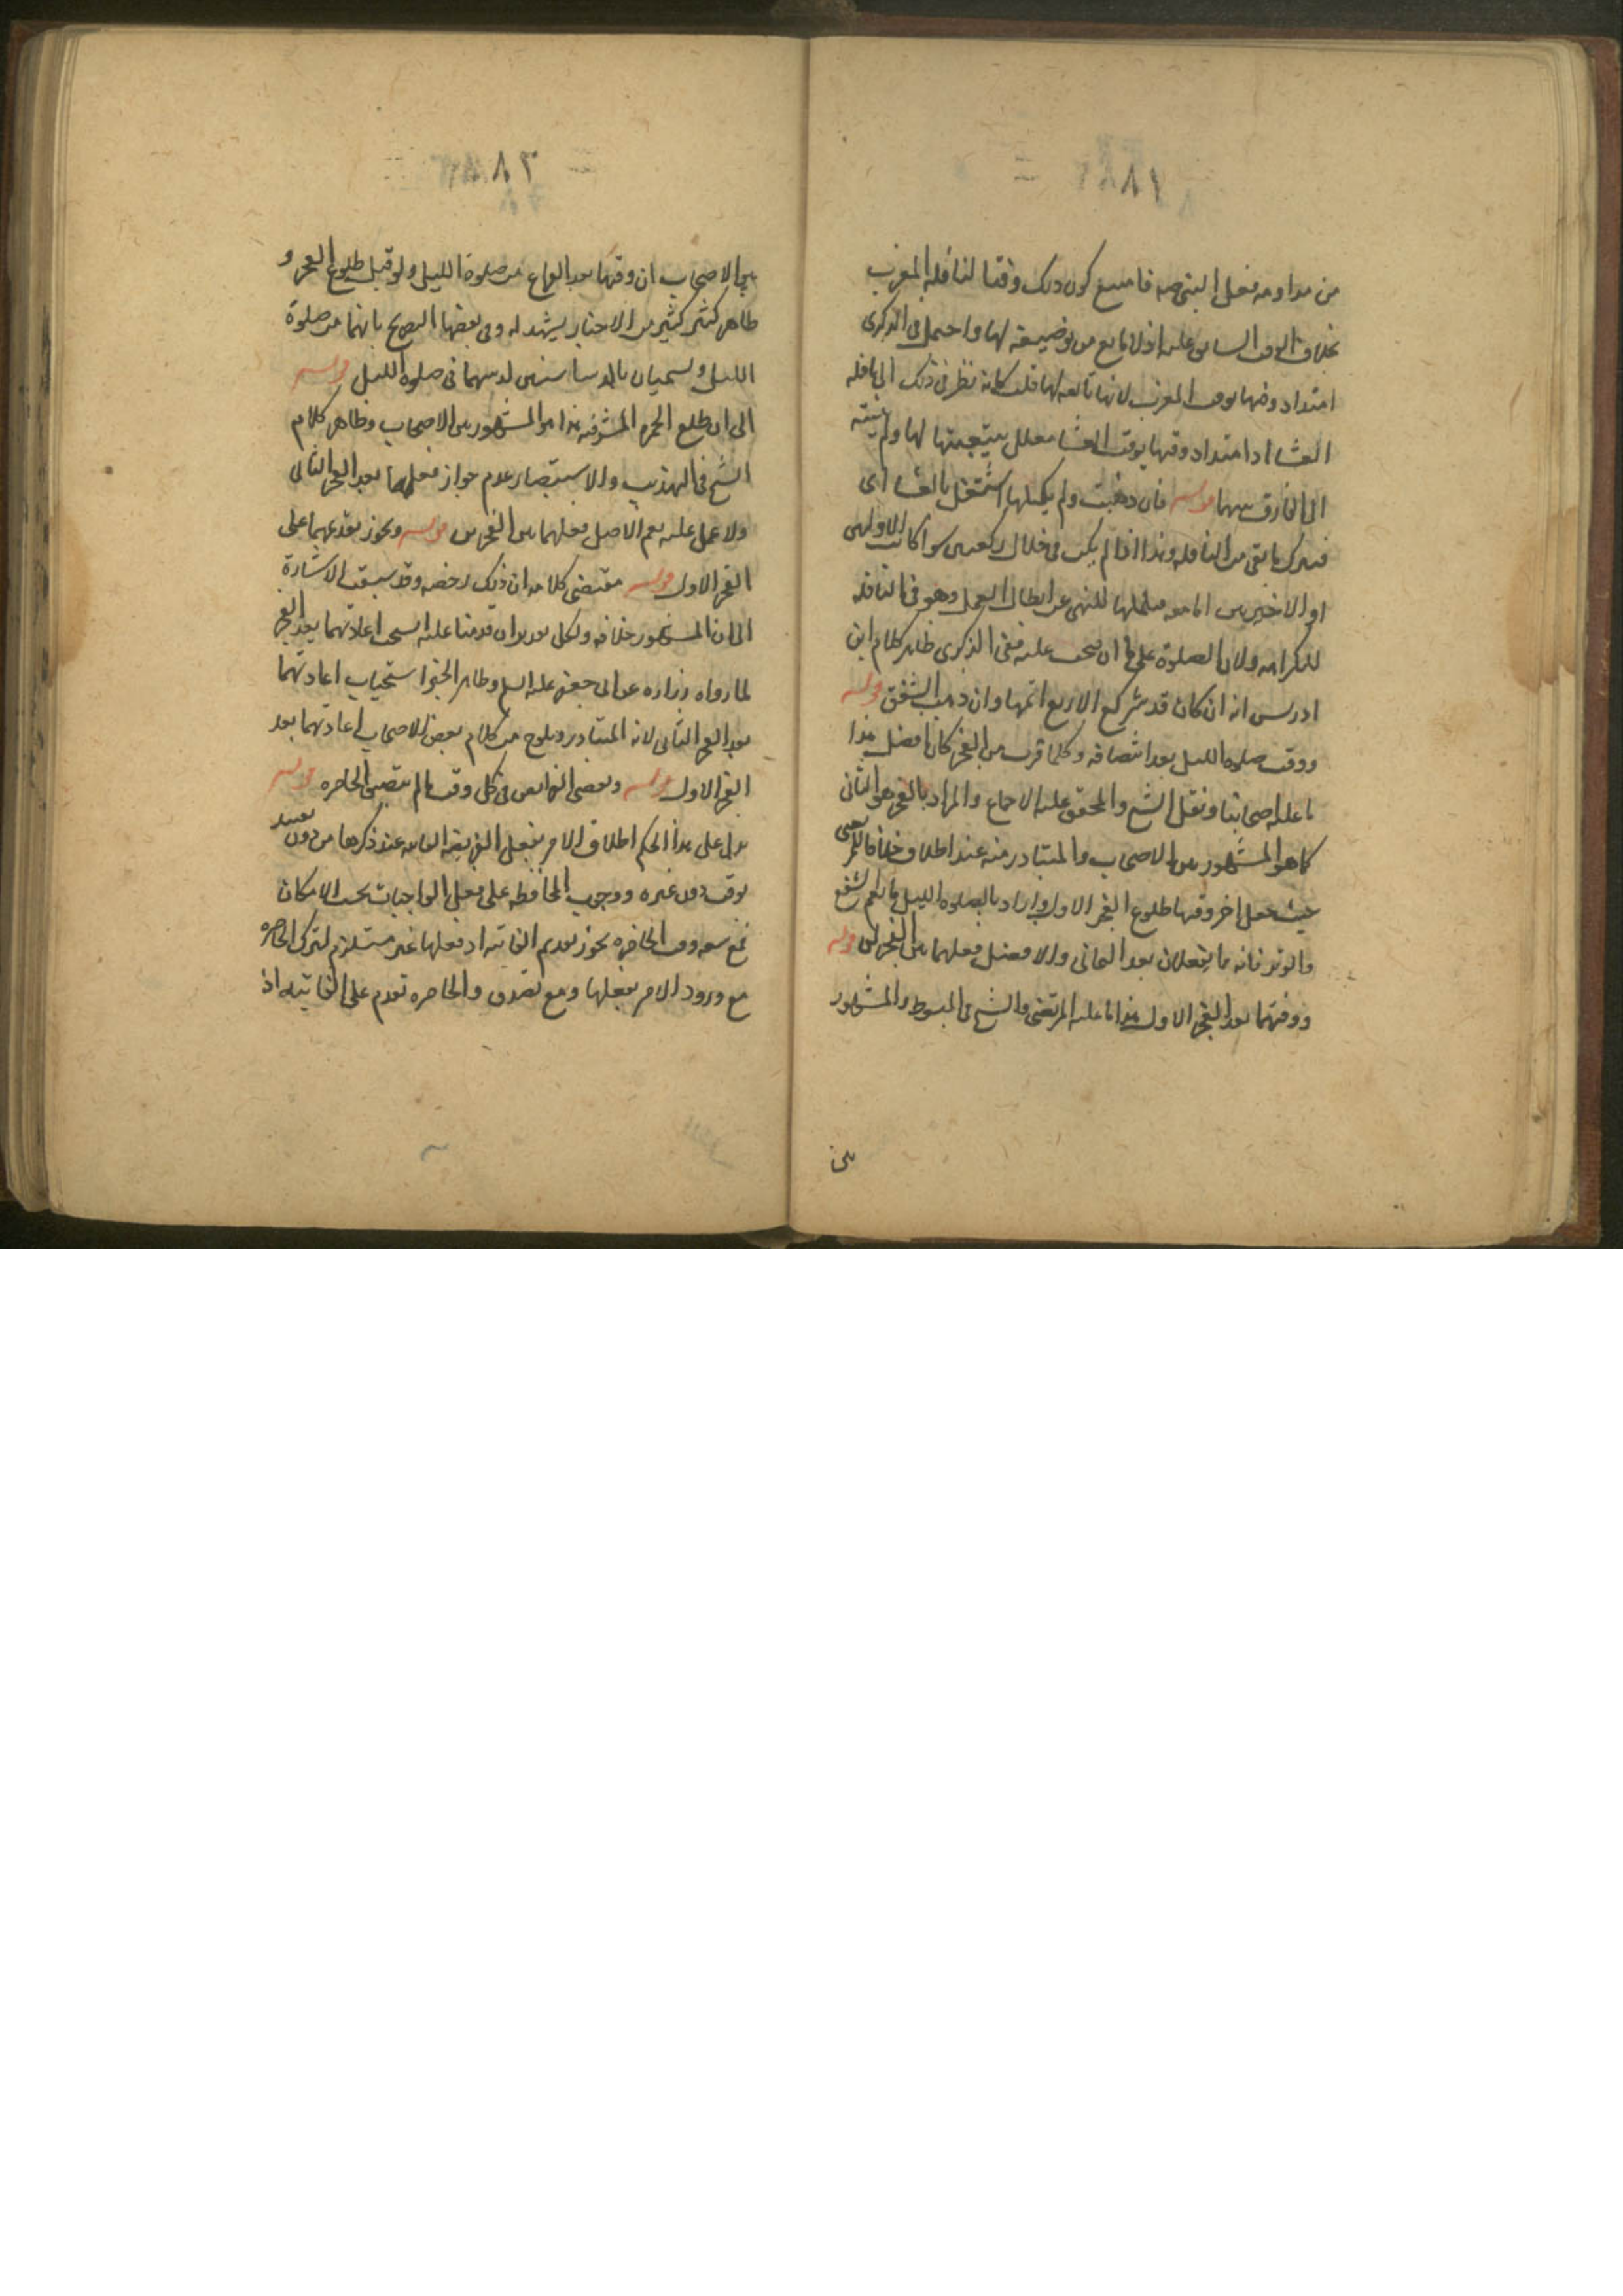 ١٨١
من مداومة فعل النبي صه فامتنع كون ذلك وقتا لنافلة المغرب
بخلاف الوقت السابق عليه اذ لا مانع من توضيفه لها واحتمل في الذكرى
امتداد وقتها بوقت المغرب لانها تابعة لها قلت كانه نظر في ذلك الى نافلة
العشاء اذ امتداد وقتها بوقت العشا معلل بتبعيتها لها ولم يتنبه
الى الفارق بينهما قوله فان ذهبت ولم يكملها اشتغل بالعشا اى
فيترك ما بقي من النافلة وهذا اذا لم يكن في خلال ركعتين سوا كانت الاوليين
او الاخيرتين اما معه فيكملها للنهي عن ابطال العمل وهو في النافلة
للكراهه ولان الصلوة على ما افتتحت عليه ففي الذكرى ظاهر كلام ابن
ادريس انه ان كان قد شرع في الاربع اتمها وان ذهب الشفق قوله
ووقت صلوة الليل بعد انتصافه وكلما قرب من الفجر كان افضل هذا
ما عليه اصحابنا ونقل الشيخ والمحقق عليه الاجماع والمراد بالفجر هو الثاني
كما هو المشهور بين الاصحاب والمتبادر منه عند اطلاقه خلافا للمرتضى
حيث جعل اخر وقتها طلوع الفجر الاول واراد بالصلوة الليل ما يعم الشفع
والوتر فانه ما يفعلان بعد الثماني والافضل فعلهما بين الفجرين قوله
ووقتهما بعد الفجر الاول هذا ما عليه المرتضى والشيخ في المبسوط والمشهور
بين
١٨٢
بين الاصحاب ان وقتها بعد الفراغ من صلوة الليل ولو قبل طلوع الفجر و
ظاهر كثير كثير من الاخبار يشهد له وفي بعضها الصريح بانهما من صلوة
الليل ويسميان بالدساستين لدسهما في صلوة الليل قوله
الى ان تطلع الحمرة المشرقيه هذا هو المشهور بين الاصحاب وظاهر كلام
الشيخ في التهذيب والاستبصار عدم جواز فعلهما بعد الفجر الثاني
ولا عمل عليه نعم الافضل فعلهما بين الفجرين قوله ويجوز تقديمهما على
الفجر الاول قوله مقتضى كلامه ان ذلك رخصه وقد سبقت الاشارة
الى ان المشهور خلافه ولكل تقدير ان قدمنا عليه استحب اعادتهما بعد الفجر
لما رواه زرارة عن ابي جعفر عليه السلم وظاهر الخبر استحباب اعادتهما
بعد الفجر الثاني لانه المتبادر ويلوح من كلام بعض الاصحاب اعادتهما بعد
الفجر الاول قوله وتقضى الفرائض في كل وقت ما لم تتضيق الحاضرة قوله
يدل على هذا الحكم اطلاق الامر بفعل الفريضة الفائتة عند ذكرها من دون تقييد
بوقت دون غيره ووجوب المحافظة على فعل الواجبات بحسب الامكان
فمع سعة وقت الحاضرة يجوز تقديم الفائتة اذ فعلها غير مستلزم لترك الحاضرة
مع ورود الامر بفعلها ومع تضيق وقت الحاضرة تقدم على الفائتة اذ